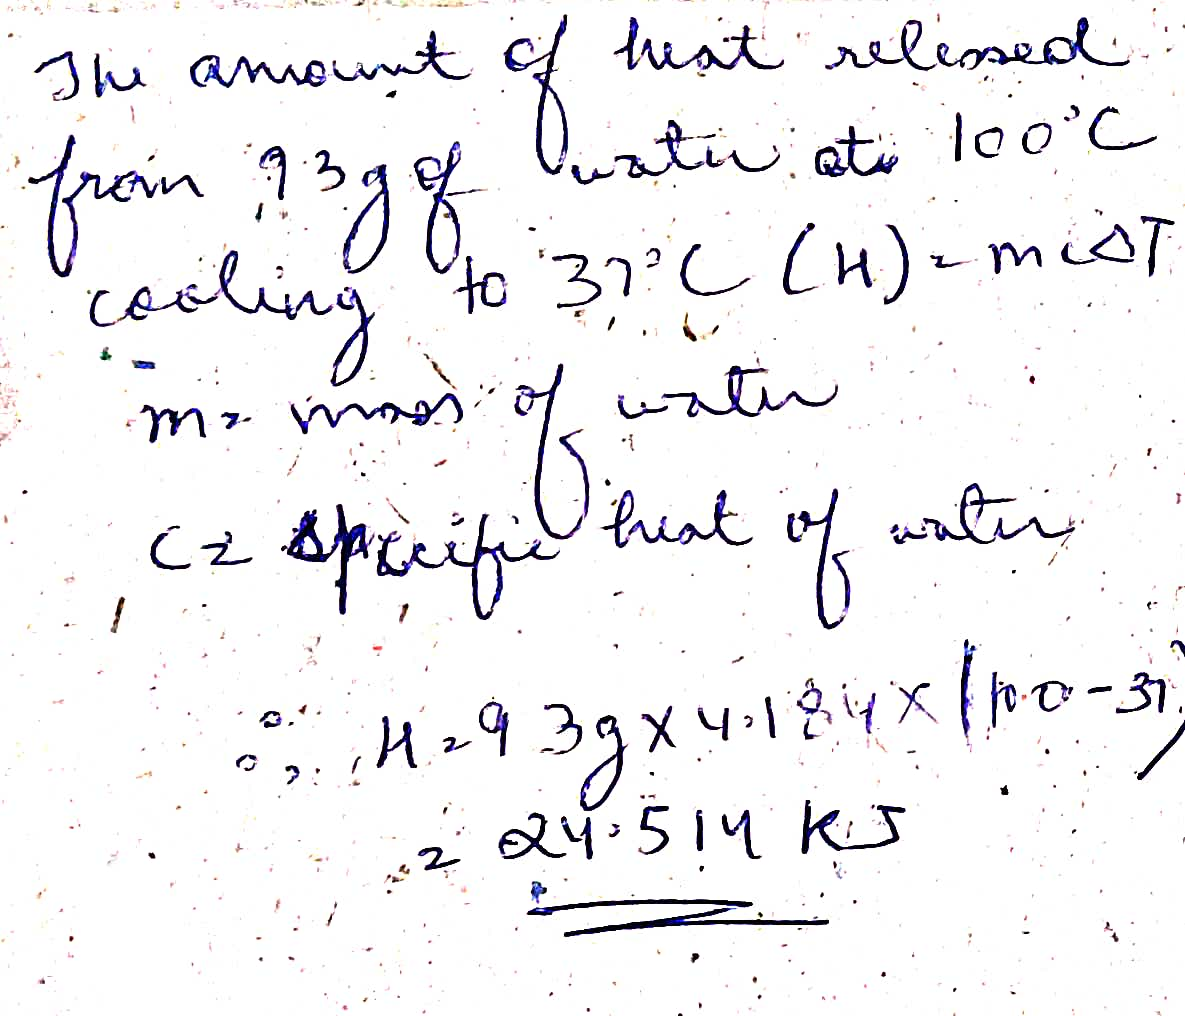 The amount of heat released
from 93g of water at 100°C
cooling to 37°C (H) = mcΔT
m = mass of water
C = specific heat of water
∴ H = 93g x 4.184 x (100-37)
= 24.514 kJ